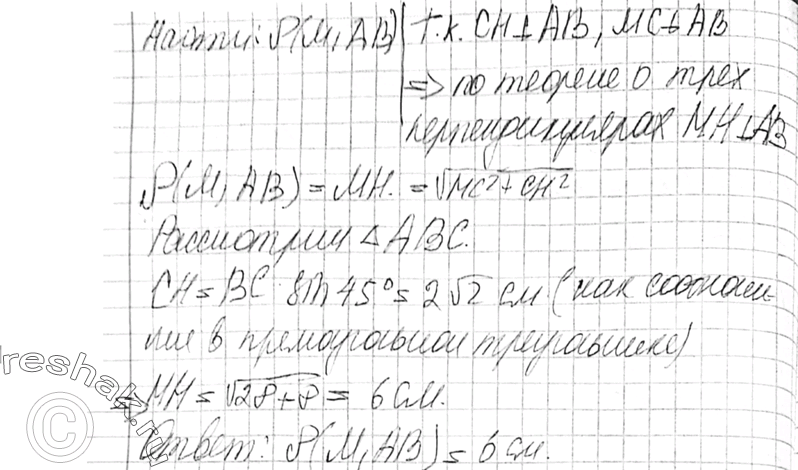 Найти: ρ(M, AB) | т.к. CH⊥AB, MC⊥AB
⇒ по теореме о трех
перпендикулярах MH⊥AB
ρ(M, AB) = MH. = √MC²+CH²
Рассмотрим △ABC.
CH = BC sin 45° = 2√2 см (как соотноше-
ние в прямоугольном треугольнике)
⇒ MH = √28+8 = 6 см.
Ответ: ρ(M, AB) = 6 см.
reshak.ru
©